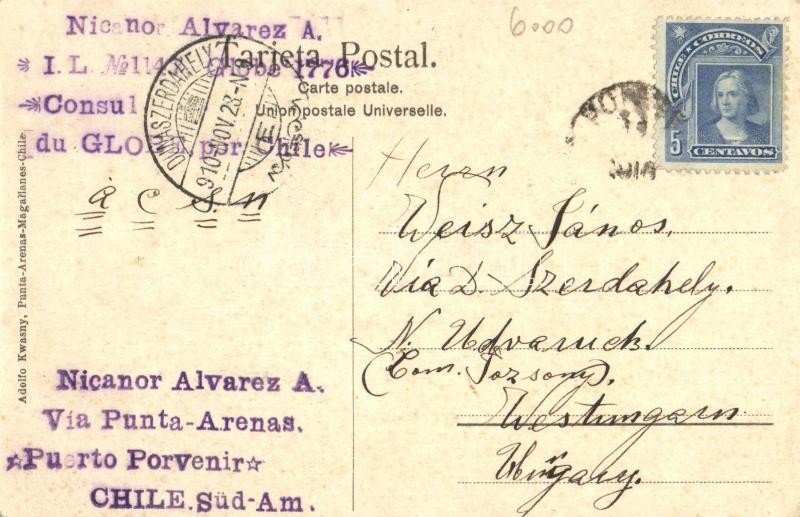 6.00
Nicanor Alvarez A.
Tarjeta Postal.
I. L. №114 Globe 1776
Carte postale.
Consul
Union postale Universelle.
du GLOBE por Chile
DUNASZERDAHELY
910 NOV. 28
CHILE CORREOS
5 CENTAVOS
a c s n
Herrn
Weisz János.
Via D. Szerdahely.
N. Udvaruck.
(Com. Pozsony).
Westungarn
Hungary.
Adolfo Kwasny, Punta-Arenas-Magallanes-Chile.
Nicanor Alvarez A.
Vía Punta-Arenas.
Puerto Porvenir
CHILE. Süd-Am.